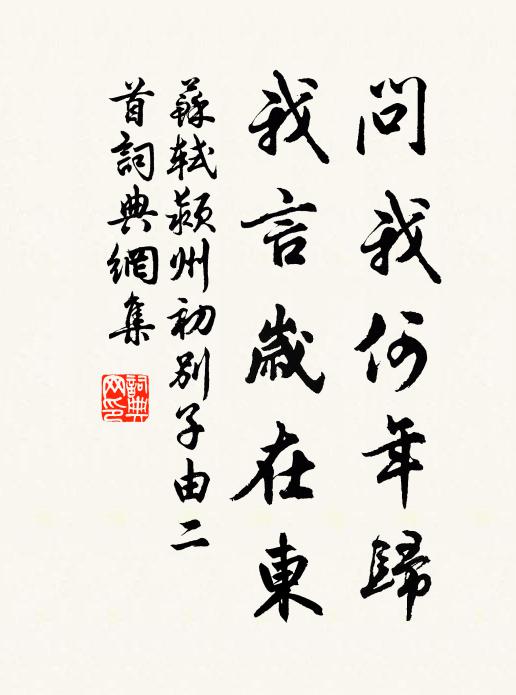 問我何年歸
我言歲在東
蘇軾潁州初別子由二
首詞典網集
詞典
网印